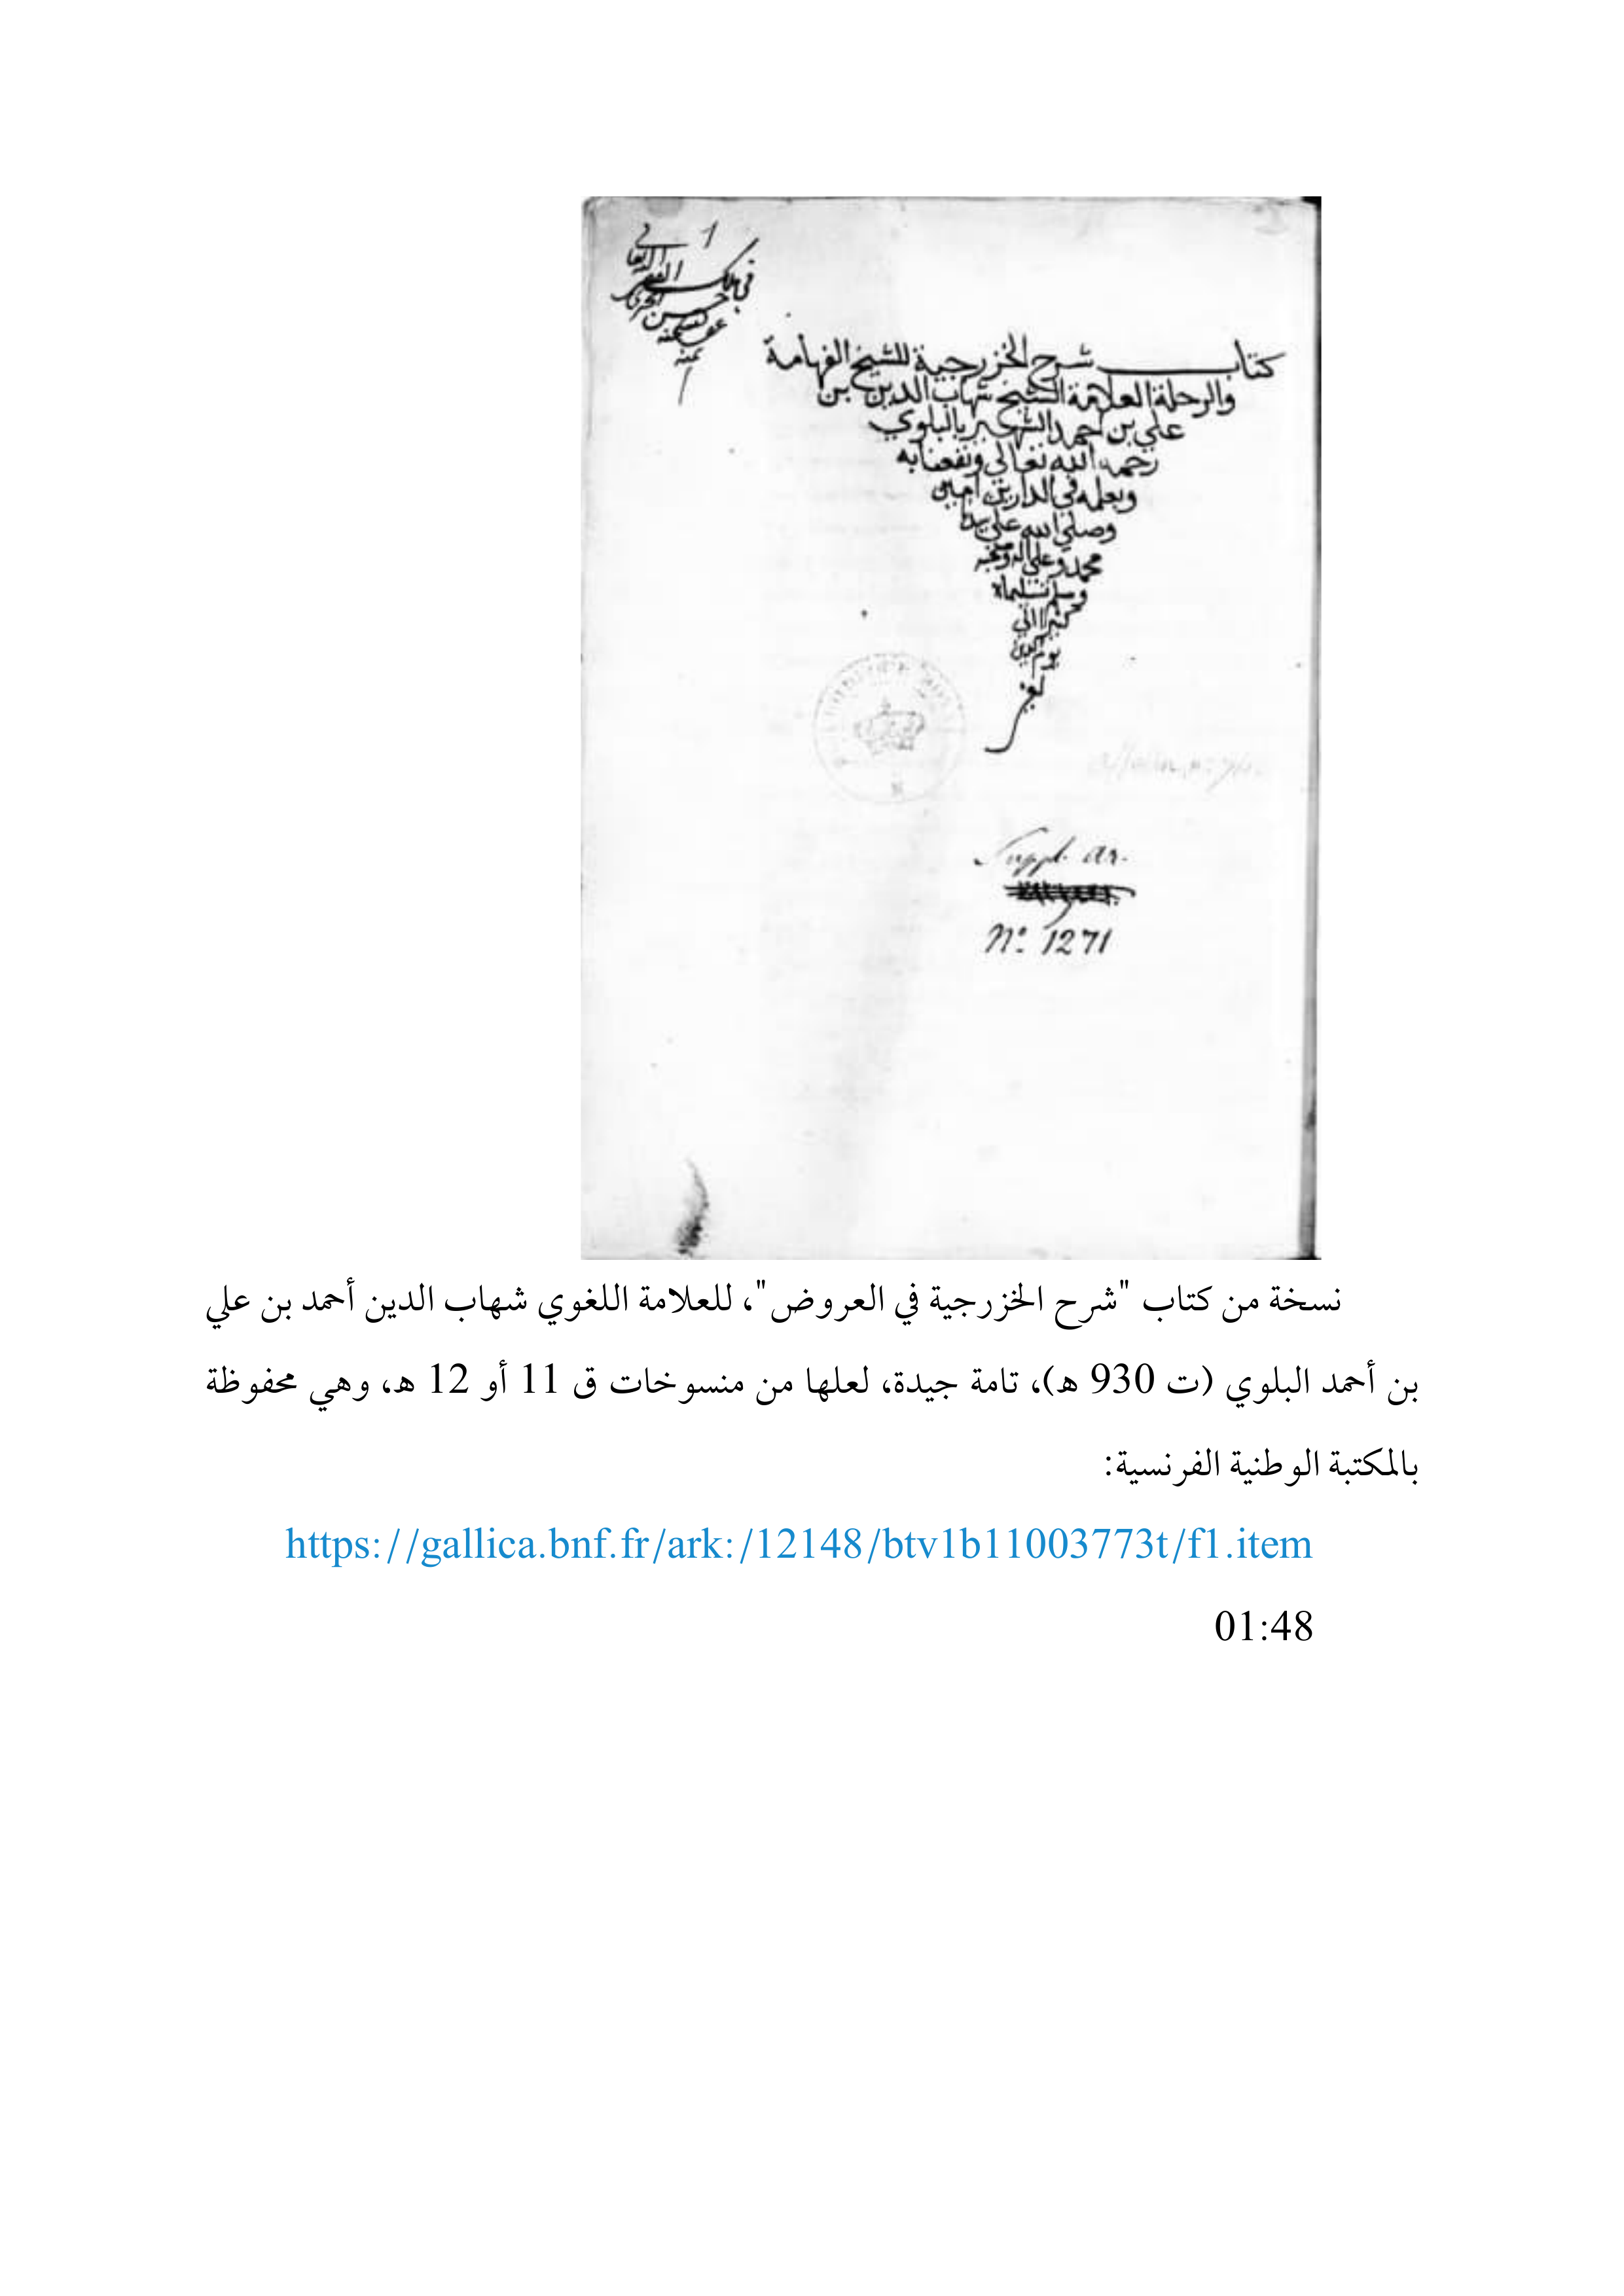 كتاب شرح الخزرجية للشيخ الفهامة
والرحلة العلامة الشيخ شهاب الدين بن
علي بن احمد الشهير بالبلوي
رحمه الله تعالي ونفعنا به
وبعلمه في الدارين امين
وصلي الله علي سيدنا
محمد وعلي اله وصحبه
وسلم تسليما
كثيرا الي
يوم الدين
Suppl. ar.
Nº 1271
نسخة من كتاب "شرح الخزرجية في العروض"، للعلامة اللغوي شهاب الدين أحمد بن علي
بن أحمد البلوي (ت 930 هـ)، تامة جيدة، لعلها من منسوخات ق 11 أو 12 هـ، وهي محفوظة
بالمكتبة الوطنية الفرنسية:
https://gallica.bnf.fr/ark:/12148/btv1b11003773t/f1.item
01:48